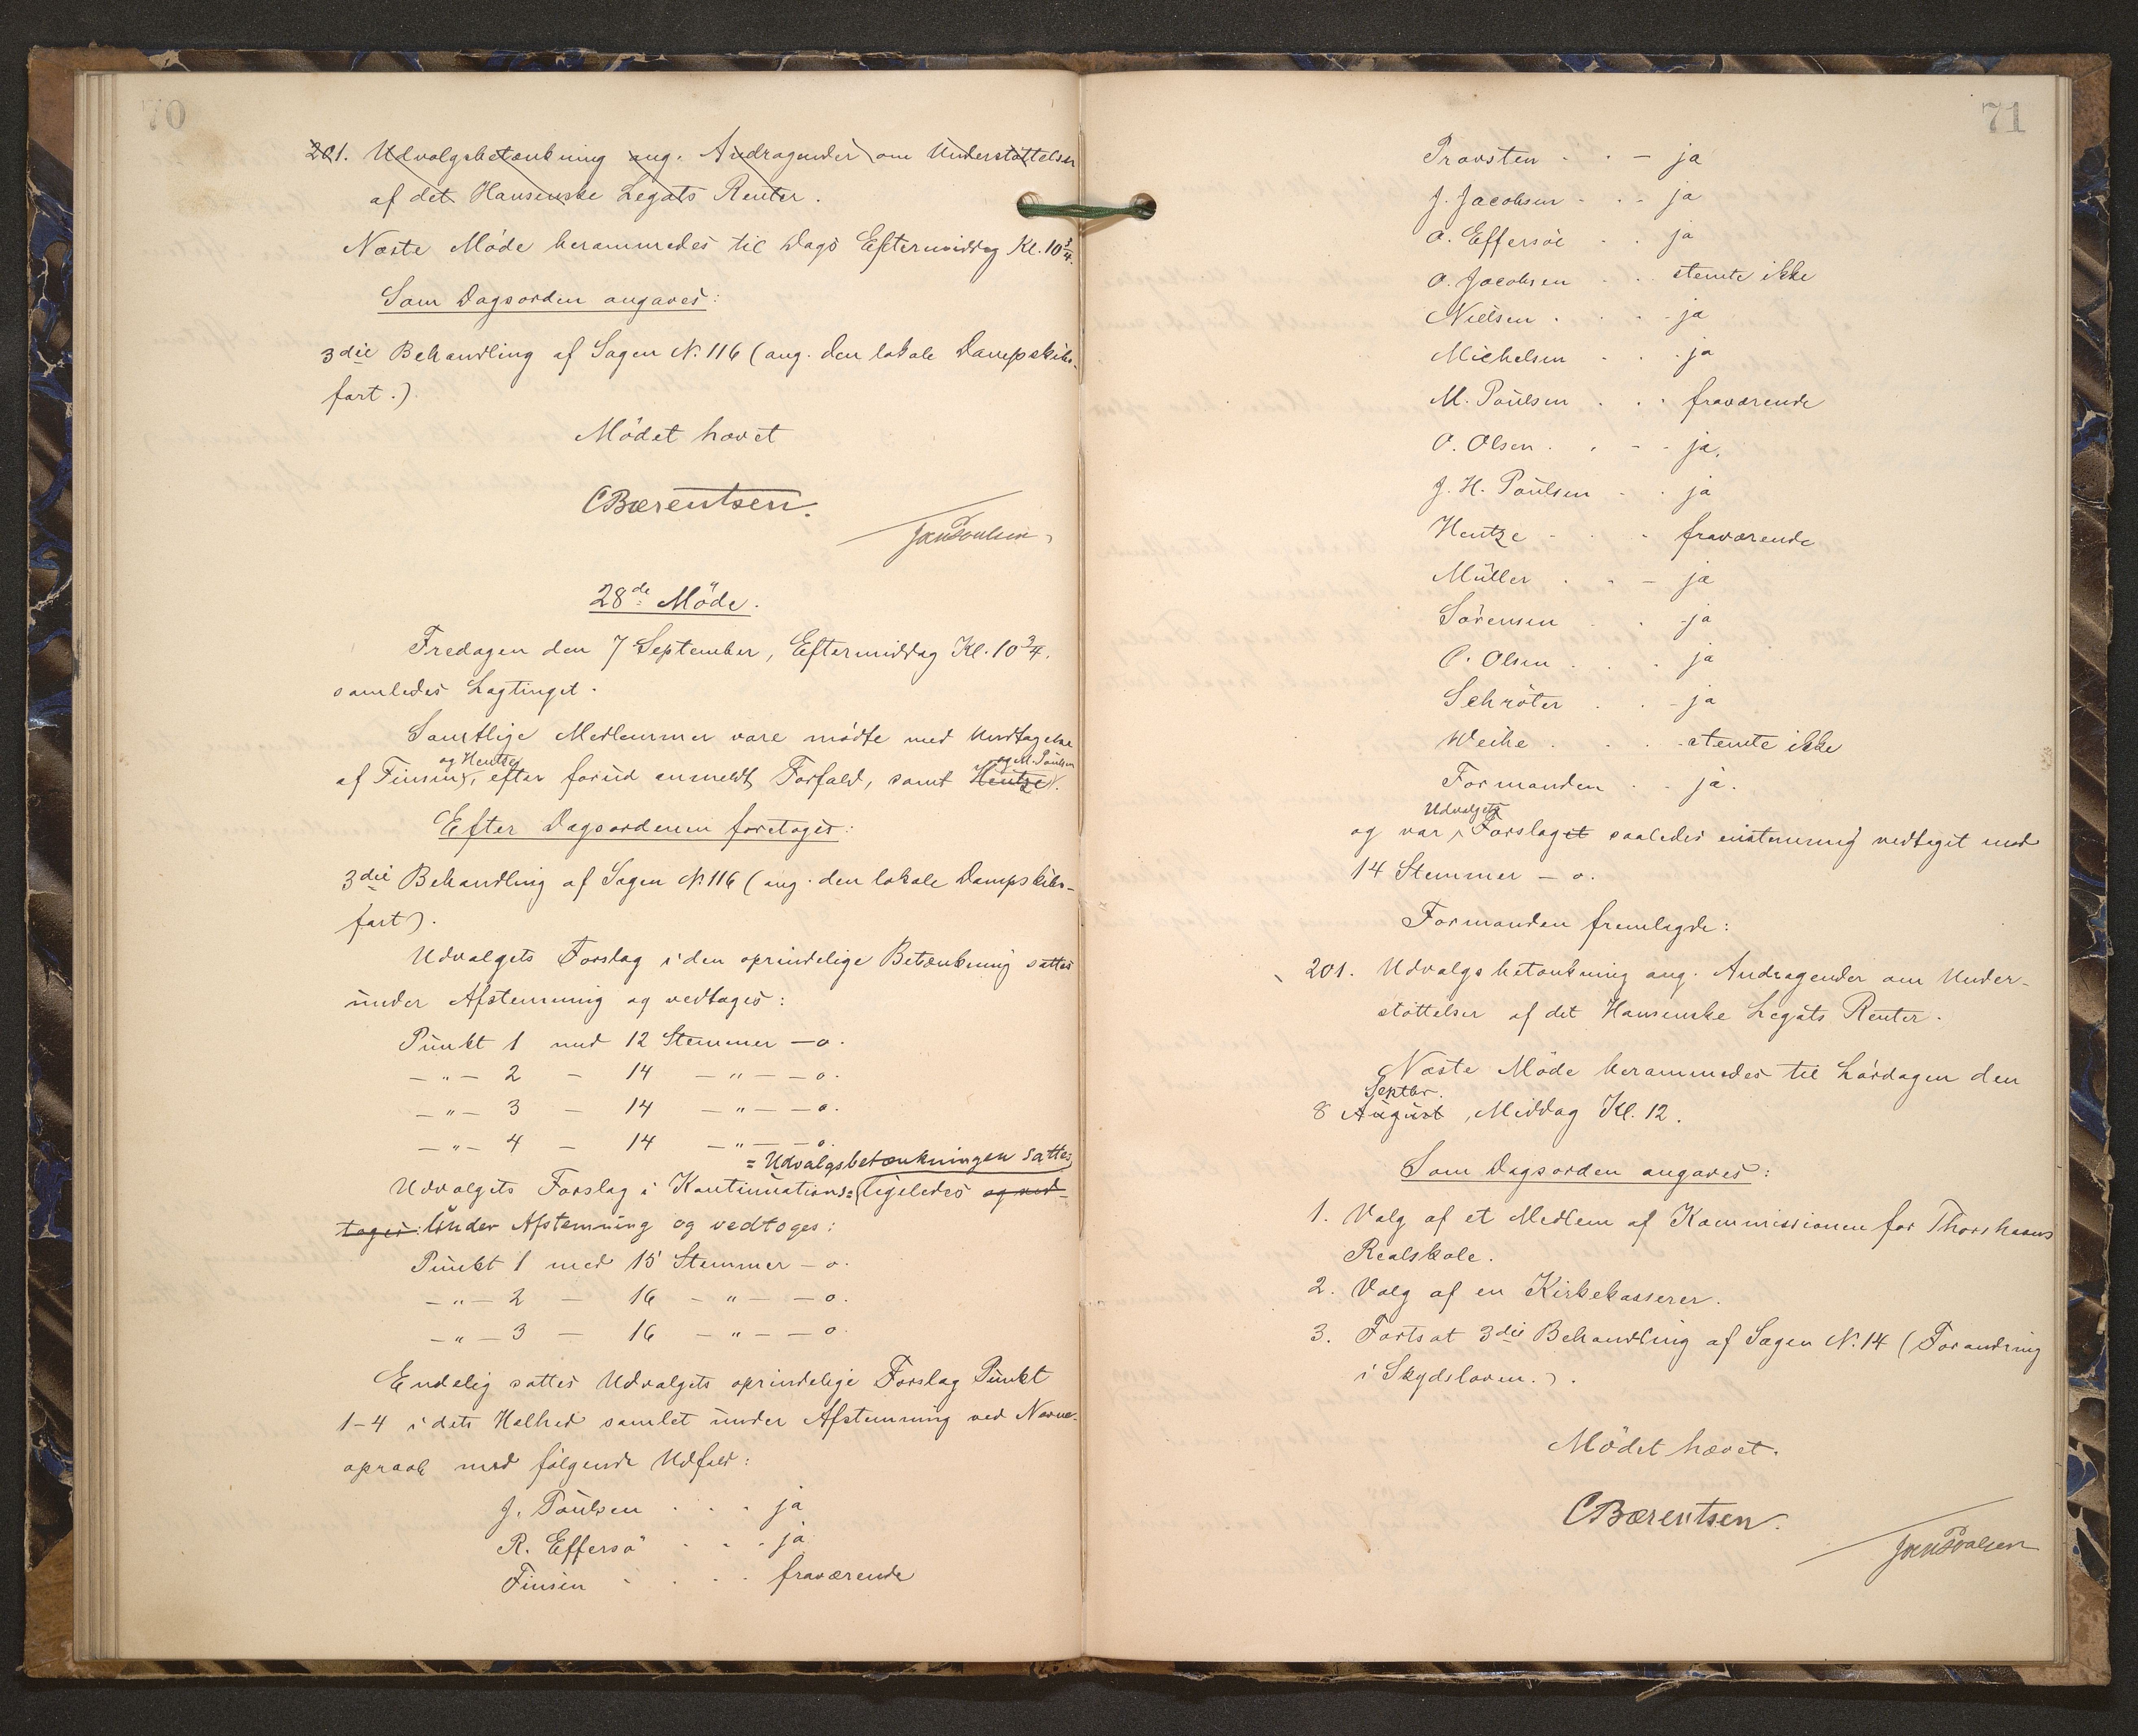 70
201. Udvalgsbetænkning ang. Andragender om Understøttelser
af det Hansenske Legats Renter.
Næste Møde berammedes til Dags Eftermiddag Kl. 10 3/4.
Som Dagsorden angaves:
3die Behandling af Sagen N. 116 (ang. den lokale Dampskibs-
fart.)
Mødet hævet
CBærentsen.
28de Møde.
Fredagen den 7 September, Eftermiddag Kl. 10 3/4.
samledes Lagtinget.
Samtlige Medlemmer vare mødte med Undtagelse
og Hentze og M. Poulsen
af Finsen, efter forud anmeldt Forfald, samt Hentze.
Efter Dagsordenen foretoges:
3die Behandling af Sagen N. 116 (ang. den lokale Dampskibs-
fart).
Udvalgets Forslag i den oprindelige Betænkning sattes
under Afstemning og vedtoges:
Punkt 1 med 12 Stemmer — o.
— " — 2 — 14 — " — — o.
— " — 3 — 14 — " — — o.
— " — 4 — 14 — " — — o.
= Udvalgsbetænkningen sattes
Udvalgets Forslag i Kontinuations= ligeledes og ved-
toges: Under Afstemning og vedtoges:
Punkt 1 med 15 Stemmer — o.
— " — 2 — 16 — " — — o.
— " — 3 — 16 — " — — o.
Endelig sattes Udvalgets oprindelige Forslag Punkt
1-4 i dets Helhed samlet under Afstemning ved Navne-
opraab med følgende Udfald:
J. Poulsen . . . ja
R. Effersö . . . ja
Finsen . . . . fraværende
71
Provsten . . — ja
J. Jacobsen - . . ja
O. Effersöe . . ja
O. Jacobsen . . stemte ikke
Nielsen . . . ja
Michelsen . . . ja
M. Poulsen . . . fraværende
O. Olsen . . - - ja.
J. H. Poulsen . . ja
Hentze . . . fraværende
Müller . . — ja
Sörensen . . ja
P. Olsen . . . ja
Schröter . . - ja
Weihe . . . . stemte ikke
Formanden . . ja.
Udvalgets
og var Forslaget saaledes enstemmig vedtaget med
14 Stemmer — o.
Formanden fremlagde:
201. Udvalgsbetænkning ang. Andragender om Under-
støttelser af det Hansenske Legats Renter.
Næste Møde berammedes til Lørdagen den
Septbr.
8 August, Middag Kl. 12.
Som Dagsorden angaves:
1. Valg af et Medlem af Kommissionen for Thorshavns
Realskole.
2. Valg af en Kirkekasserer.
3. Fortsat 3die Behandling af Sagen N. 14 (Forandring
i Skydsloven.).
Mødet hævet.
CBærentsen.